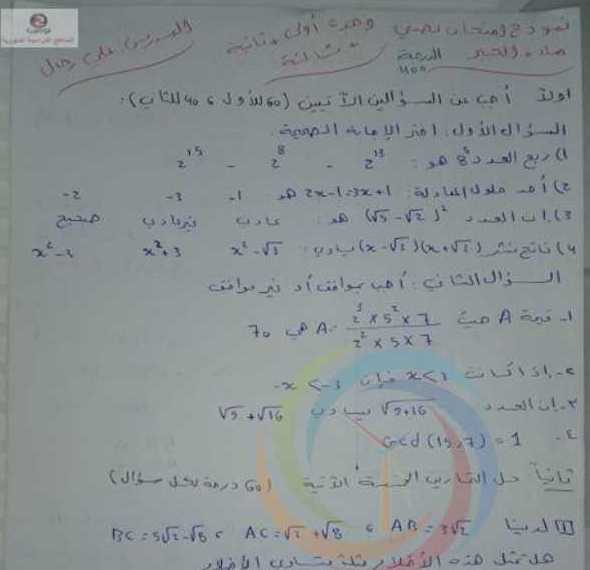 نموذج امتحان نصفي وحدة أولى وثانية
مادة الجبر الدرجة 400 وثالثة
أولاً أجب عن السؤالين الآتيين (60 للأول، 40 للثاني):
السؤال الأول: اختر الإجابة الصحيحة
1) ربع العدد 8⁵ هو: 2¹³ - 2⁸ - 2¹⁵
2) أحد حلول المعادلة: 2x-1=3x+1 هو -1 -3 -2
3) إن العدد (√5 - √2)² هو: عادي غير عادي صحيح
4) ناتج نشر (x-√3)(x+√3) يساوي: x²-√3 x²+3 x²-3
السؤال الثاني: أجب بموافق أو غير موافق
1- قيمة A حيث A = (2³ × 5² × 7) / (2² × 5 × 7) هي 70
2- إذا كانت x<3 فإن -x<-3
3- إن العدد √9+16 يساوي √9+√16
4- Gcd(15,7)=1
ثانياً حل التمارين الخمسة الآتية (60 درجة لكل سؤال)
1 لدينا AB=3√2 ، AC=√2+√8 ، BC=5√2-√8
هل تمثل هذه الأضلاع مثلث متساوي الأضلاع